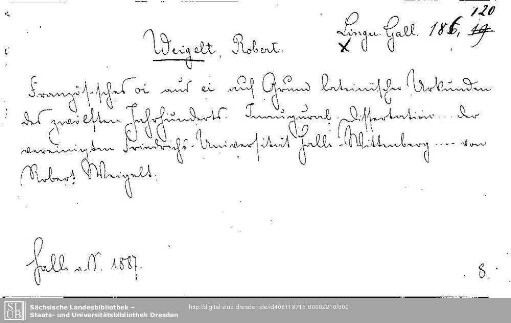 120
Lingu. Gall. 186,
x
Weigelt, Robert.
Französisches oi aus ei auf Grund lateinischer Urkunden
des zwölften Jahrhunderts. Inaugural-Dissertation der
vereinigten Friedrichs-Universität Halle-Wittenberg .... von
Robert Weigelt.
Halle a. S. 1887.
8.
SLUB
Sächsische Landesbibliothek –
Staats- und Universitätsbibliothek Dresden